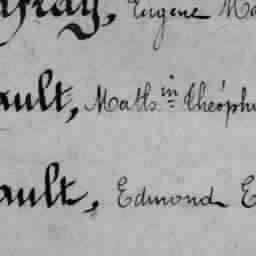 Eugène Ma
ault, Math.in Théophi
ault, Edmond E